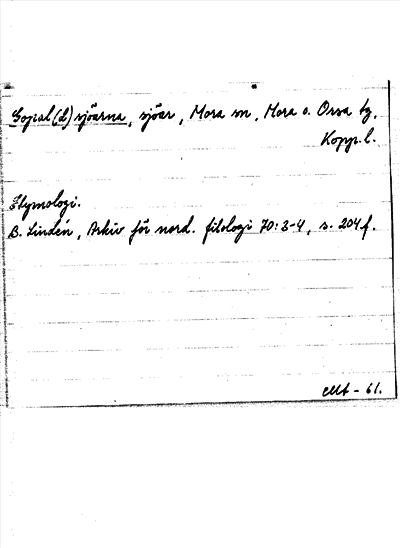 Gopal(d)sjöarna, sjöar, Mora sn, Mora o. Orsa tg,
Kopp. l.
Etymologi.
B. Lindén, Arkiv för nord. filologi 70:3-4, s. 204 f.
-61.